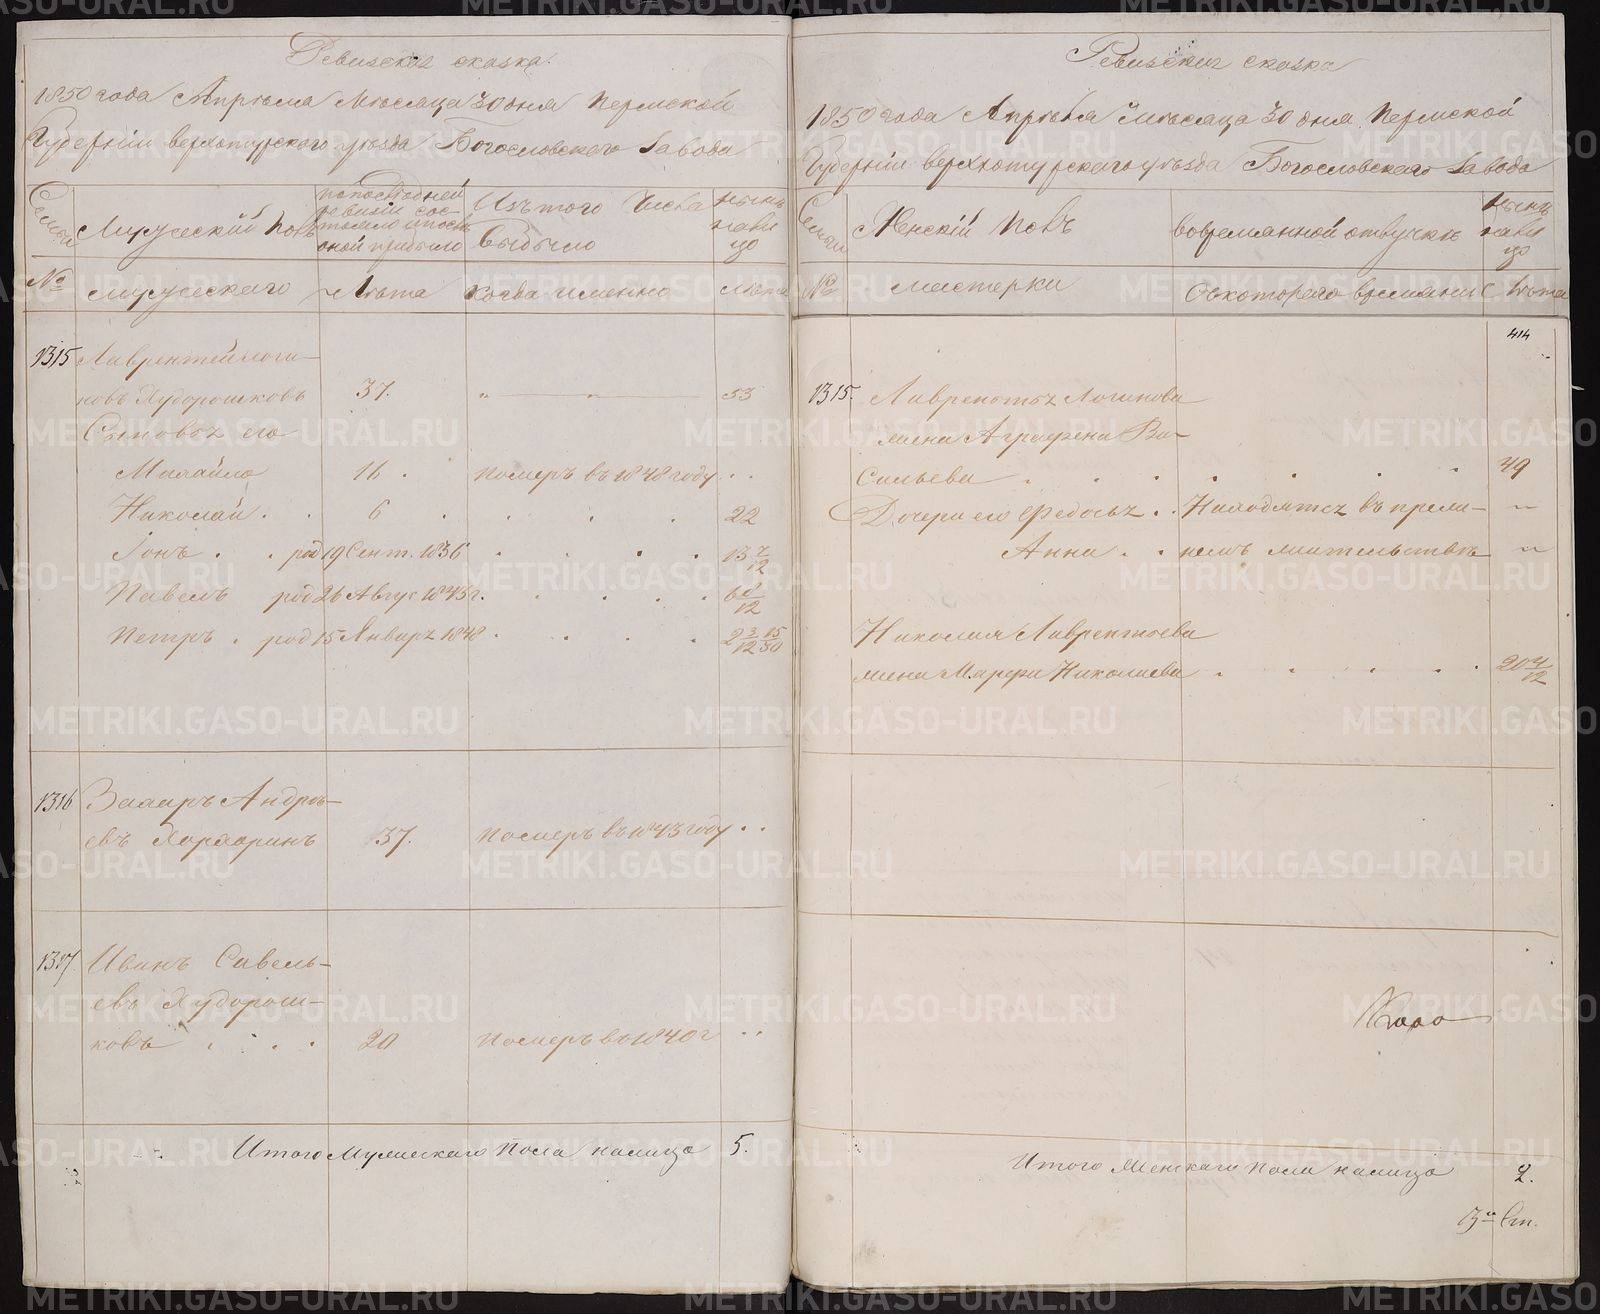 Ревизская сказка.
1850 года Апреля Месяца 30 дня Пермской
Губернiи верхотурского уезда Богословского Завода
Семьи
Мужеский Полъ
по последней
ревизiи сос-
тояло и после
оной прибыло
Изъ того Числа
Выбыло
ныне
нали
цо
№
мужескаго
Лета
когда именно
лета
1315
Лаврентей Логи-
новъ Худорошковъ 37. " " 53
Сыновья его
Михайло 16 . померъ въ 1848 году . .
Николай . . 6 . . . . 22
Iонъ . . род 19 Сент. 1836 . . . . 13 7/12
Павелъ род 26 Авгус 1843 г. . . . . 6 8/12
Петръ . род 15 Января 1848 . . . . 2 3/12 15/30
1316 Захаръ Андре-
евъ 37. померъ въ 1843 году . .
1317. Иванъ Савель-
евъ Худорош-
ковъ . . . 20 померъ въ 1840 г . .
Итого Мужескаго Пола налицо 5.
Ревизская сказка
1850 года Апреля Месяца 30 дня Пермской
Губернiи верхотурского уезда Богословского Завода
Семьи
Женскiй Полъ
вовременной отлучке
ныне
нали
цо
№
Съ котораго времени
Лета
414
1315. Лаврентья Логинова
жена Аграфена Ва-
сильева . . . . . . . 49
Дочери его Федосья . . Находятся въ преж- "
Анна . . немъ жительстве "
Николая Лаврентьева
жена Марфа Николаева . . . . . 20 4/12
Итого Женскаго пола налицо 2.
METRIKI.GASO-URAL.RU